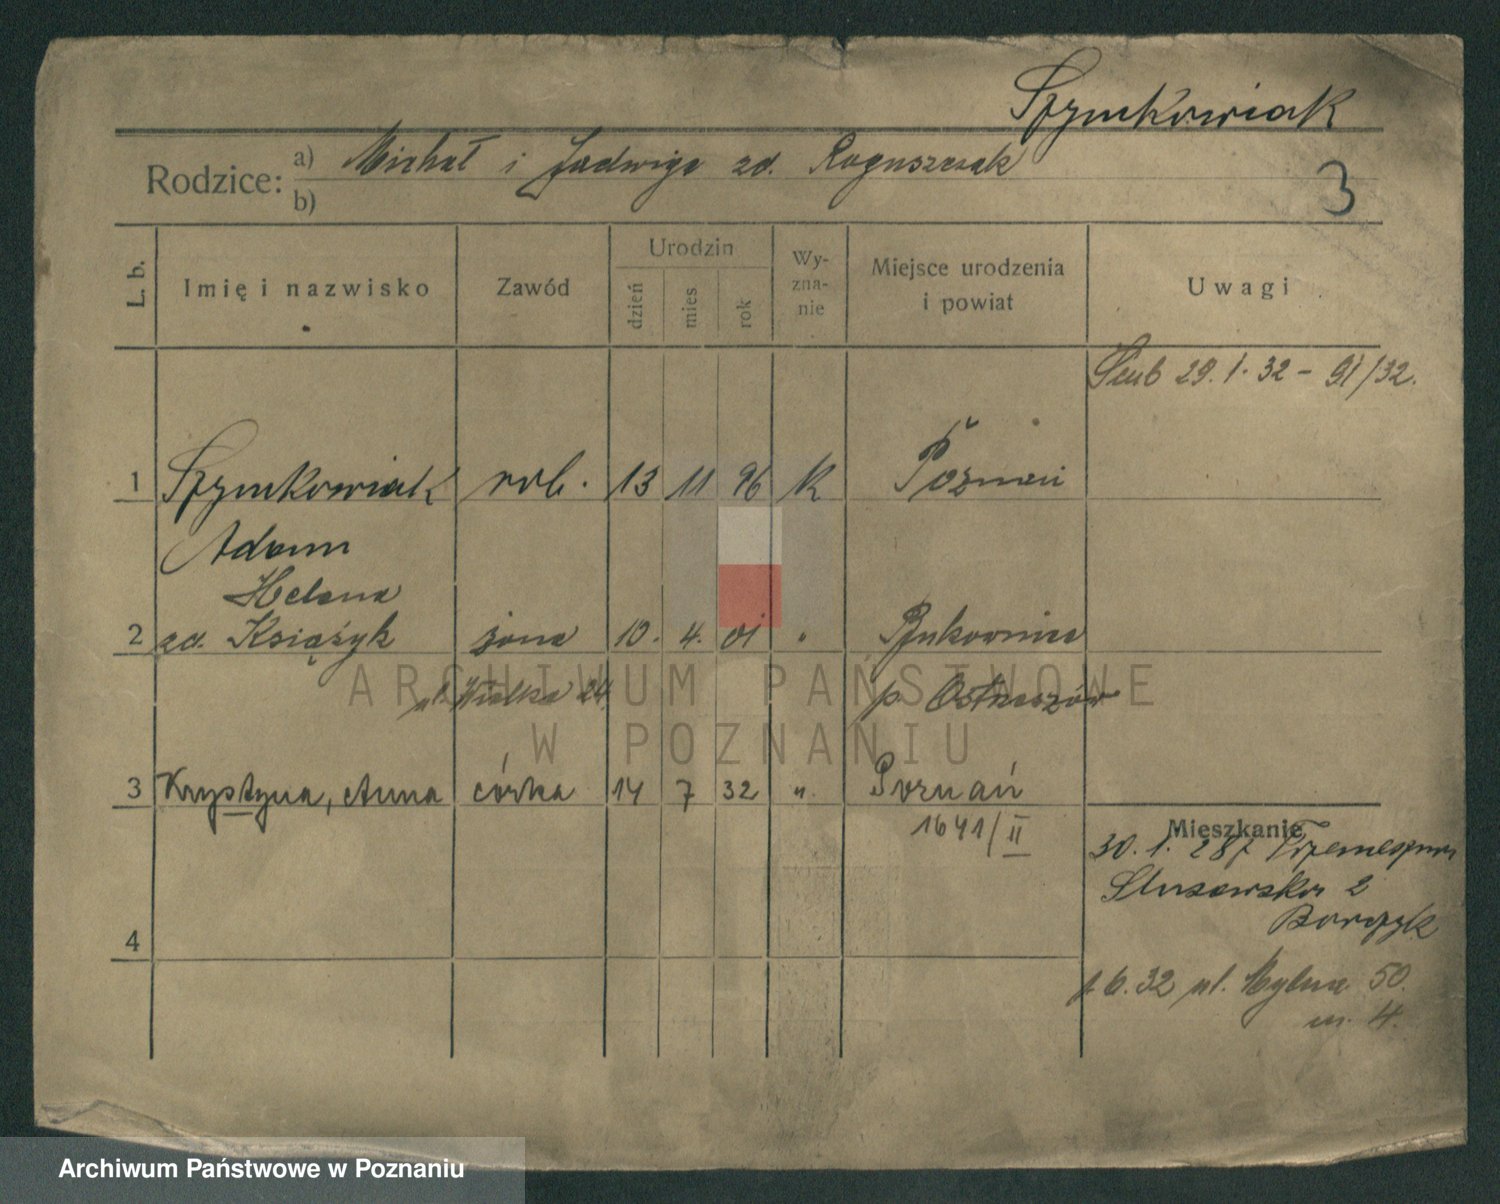 Szymkowiak
Rodzice: a) Michał i Jadwiga zd. Roguszczak
b)
3
L. b.
Imię i nazwisko
Zawód
Urodzin
dzień
mies
rok
Wy-
zna-
nie
Miejsce urodzenia
i powiat
Uwagi
Ślub 29. 1. 32 – 91/32.
1 Szymkowiak rob. 13 11 96 K Poznań
Adam
Helena
2 zd. Książyk żona 10. 4. 01 " Bukownica
ul. Wielka 24 p. Ostrzeszów
3 Krystyna, Anna córka 14 7 32 " Poznań
1641/II
Mieszkanie
30. 1. 287
2
4
1. 6. 32 ul. 50.
m. 4.
ARCHIWUM PAŃSTWOWE
W POZNANIU
Archiwum Państwowe w Poznaniu